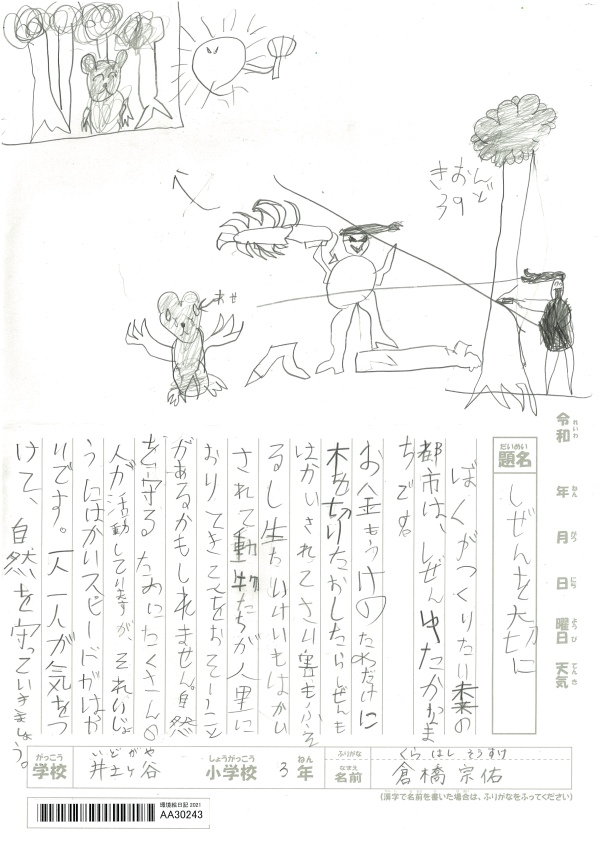 きおんど
39
あせ
令和 れいわ
年 ねん
月 がつ
日 にち
曜日 ようび
天気 てんき
だいめい
題名
しぜんを大切に
ぼくがつくりたい未来の
都市は、しぜんゆたかなま
ちです。
お金もうけのためだけに
木を切りたおしたらしぜんも
はかいされてさい害もふえ
るし生たいけいもはかい
されて動物たちが人里に
おりてきて人をおそうこと
があるかもしれません。自然
を守るためにたくさんの
人が活動していますが、それいじょ
うにはかいスピードがはや
いです。一人一人が気をつ
けて、自然を守っていきましょう。
がっこう いどがや しょうがっこう ねん ふりがな くらはし そうすけ
学校 井土ヶ谷 小学校 3年 なまえ 名前 倉橋宗佑
(漢字で名前を書いた場合は、ふりがなをふってください)
環境絵日記 2021
AA30243